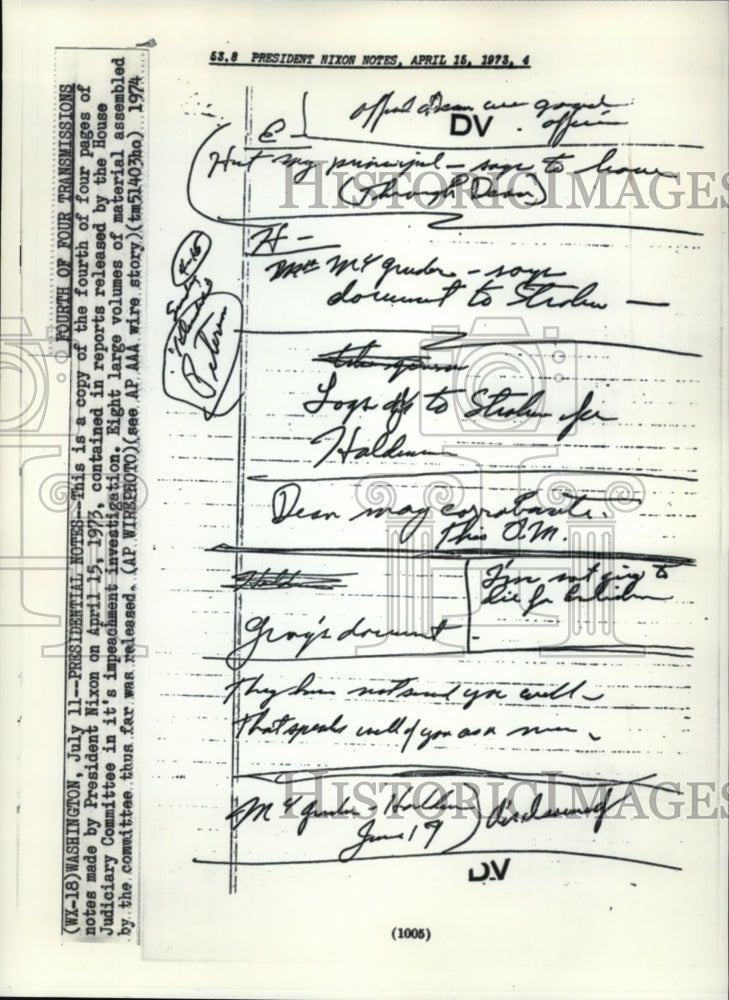 53.8 PRESIDENT NIXON NOTES, APRIL 15, 1973, 4
DV
E
Hunt my principal - says to leave
(Through Dean)
H -
McGruder - says
document to Strachan -
4-15
Sunday
Petersen
to Strachan for
Haldeman
Dean may corroborate
this P.M.
I'm not going to
lie for
Gray's document
They have not served you well -
That speaks well of you as a man -
McGruder - Haldeman
June 19
DV
(1005)
HISTORICIMAGES
HISTORICIMAGES
(WX-18)WASHINGTON, July 11--PRESIDENTIAL NOTES--This is a copy of the fourth of four pages of
FOURTH OF FOUR TRANSMISSIONS
notes made by President Nixon on April 15, 1973, contained in reports released by the House
Judiciary Committee in it's impeachment investigation. Eight large volumes of material assembled
by the committee thus far was released. (AP WIREPHOTO)(see AP AAA wire story)(tm51403ho) 1974